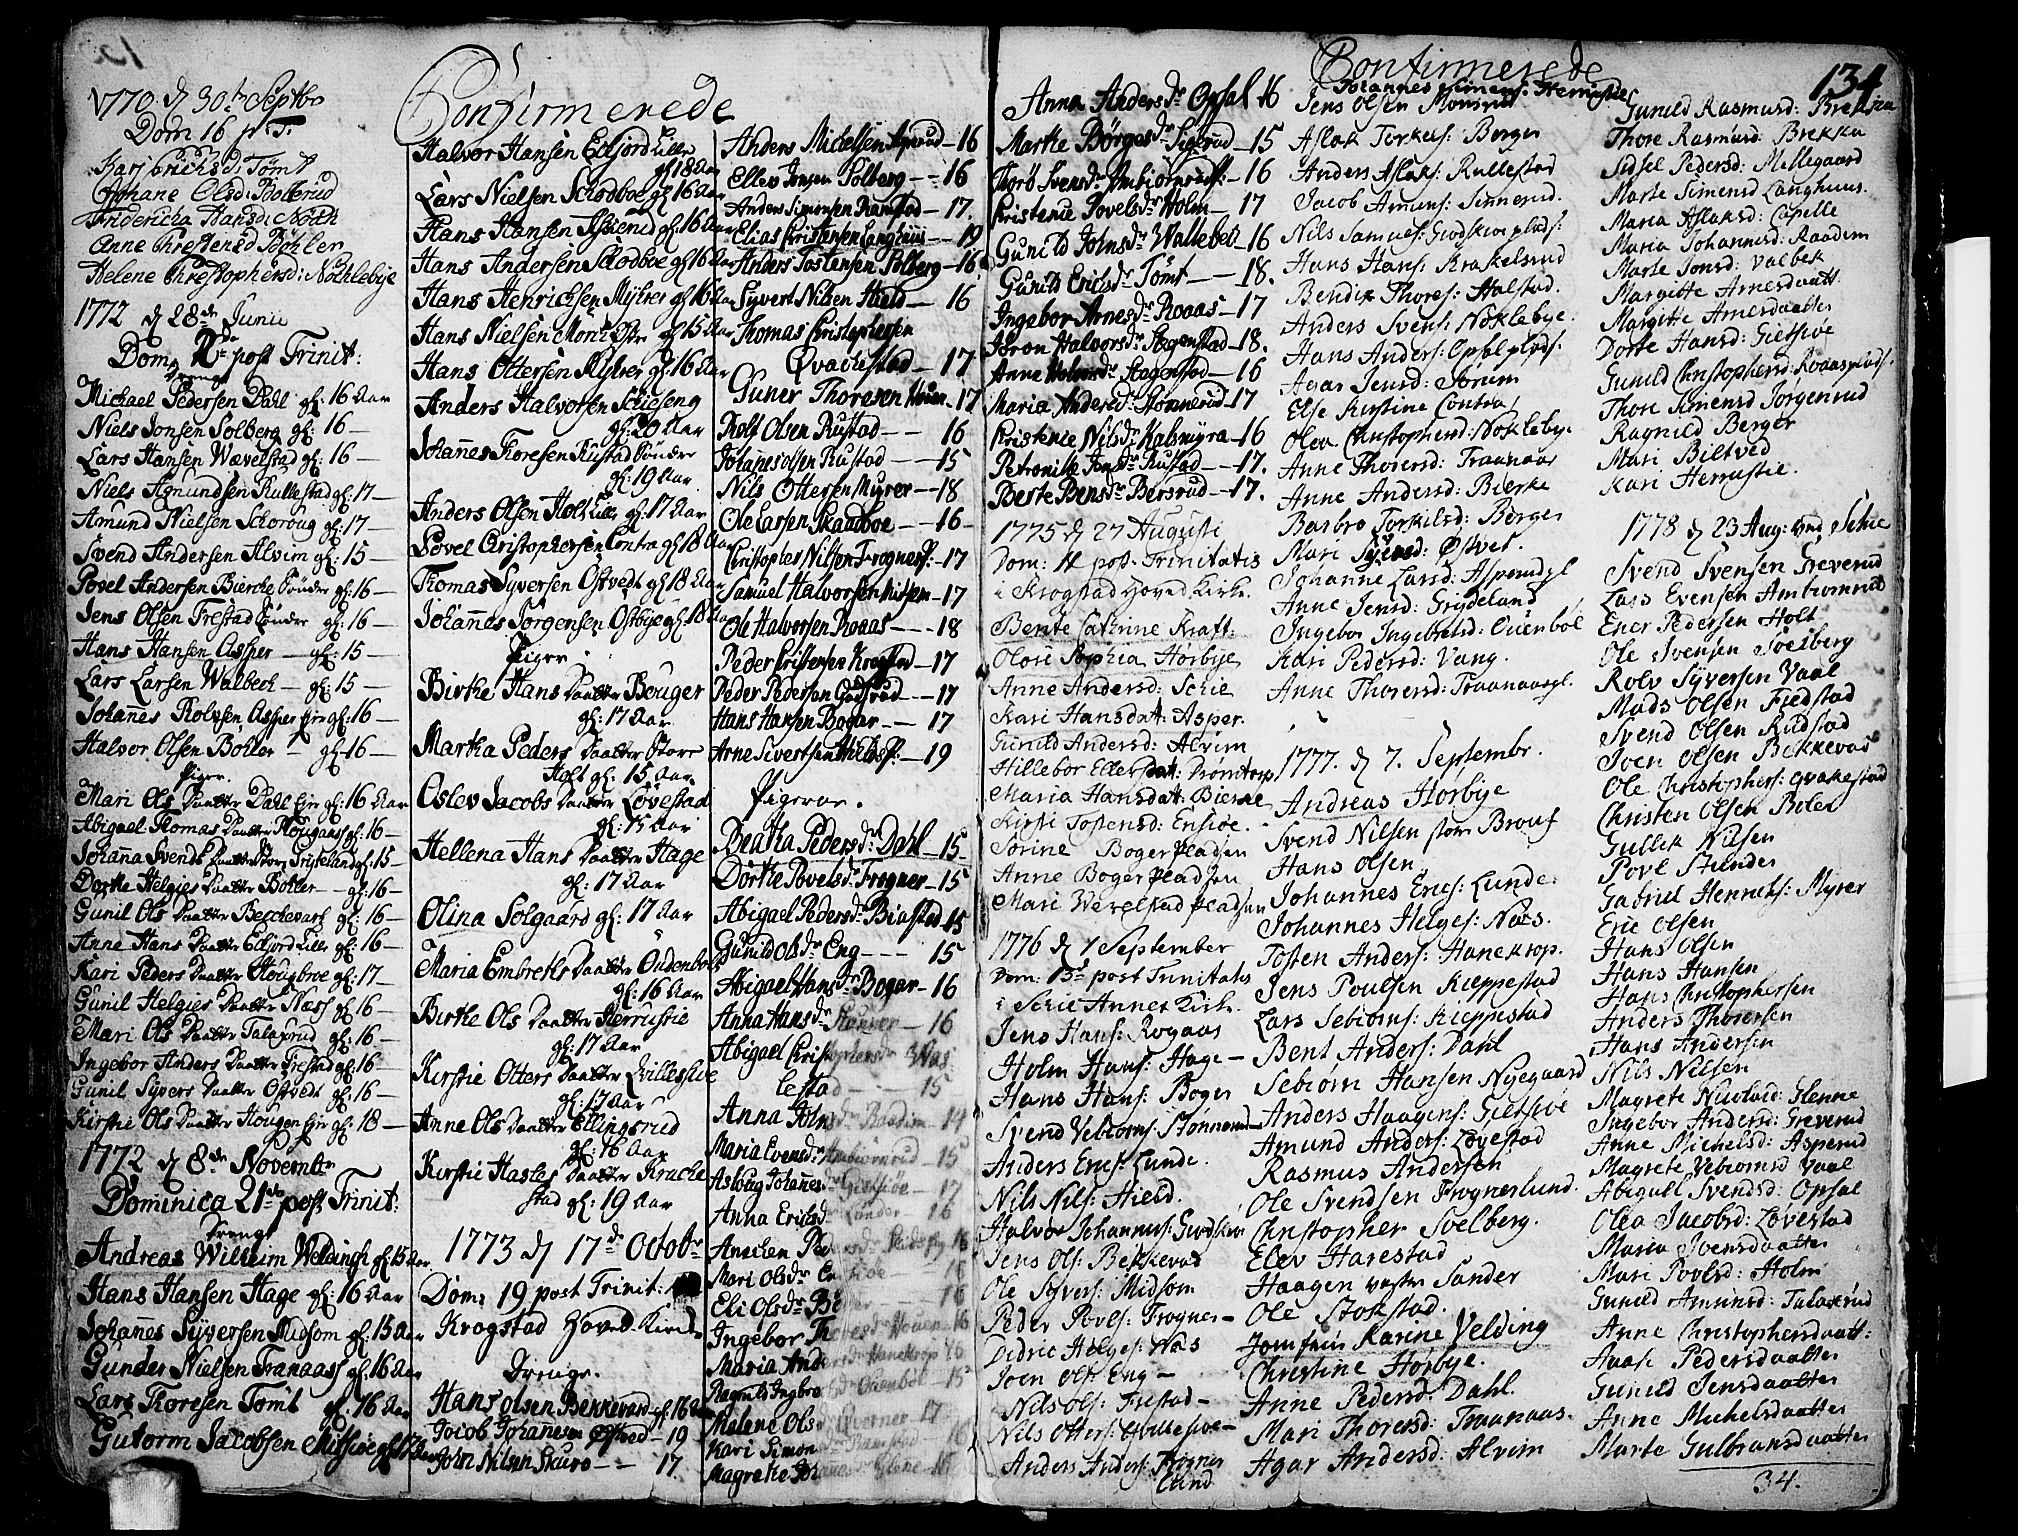 Confirmerede
1770 d 30th Septbr
Dom 16 p. T.
Kari Erichsd: Tømt
Johane Olsd: Botterud
Fridericha Hansd: Noth
Anne Christensd Bøhler
Helene Christophersd: Nochlebye
1772 d 28de Junii
Dom 2de post Trinit:
Drenge
Michael Pedersen Dahl gl: 16 Aar
Niels Jonsen Solberg gl: 16 —
Lars Hansen Wævelstad gl: 16 —
Niels Amundsen Rullestad gl: 17 —
Amund Nielsen Schoroug gl: 17 —
Svend Andersen Alvim gl: 15 —
Povel Andersen Bierche Sønder gl: 16 —
Jens Olsen Frestad Sønder gl: 16 —
Hans Hansen Asper — gl: 15 —
Lars Larsen Walbech — gl: 15 —
Johannes Rolvsen Asper gl: 16 —
Halvor Olsen Bøhler — gl: 16 —
Piger.
Mari Ols Daatter Dahl gl: 16 Aar
Abigael Thomas Daatter Hougaas gl: 16 —
Johanna Svends Daatter gl: 15 —
Dorthe Helgies Daatter Bøhler — gl: 16 —
Gunil Ols Daatter Becchevars gl: 16 —
Anne Hans Daatter Edsjord Lille gl: 16 —
Kari Peders Daatter Hougsbroe gl: 17 —
Gunil Helgies Daatter Næss gl: 16 —
Mari Ols Daatter Talaxrud gl: 16 —
Ingebor Anders Daatter Frestad gl: 16 —
Gunil Syvers Daatter Ostvedt gl: 16 —
Kirstie Ols Daatter Hougen gl: 18 —
1772 d 8de Novembr
Dominica 21de post Trinit:
Drenge
Andreas Wilhelm Weldingh gl: 15 Aar
Hans Hansen Hage gl: 16 Aar
Johannes Syversen Midsom gl: 15 Aar
Gunder Nielsen Tranaass gl: 16 Aar
Lars Thoresen Tømt gl: 16 Aar
Gutorm Jacobsen
Halvor Hansen Edsjord Lille
gl 18 Aar
Lars Nielsen Schodboe gl 16 Aar
Hans Hansen gl 16 Aar
Hans Andersen Schodboe gl 16 Aar
Hans Henrichsen Myhrer gl 16 Aar
Hans Nielsen gl 15 Aar
Hans Ottersen Myhrer gl: 16 Aar
Anders Halvorsen Schieseng
gl: 20 Aar
Johannes Thoresen Rustad Sønder
gl: 19 Aar
Anders Olsen Holt Lille gl: 17 Aar
Povel Christophersen Contra gl 18 Aar
Thomas Syversen Ostvedt gl 18 Aar
Johannes Jørgensen Ostbye gl 18 Aar
Piger
Birthe Hans Daatter Bouger
gl: 17 Aar
Martha Peders Daatter Store
Holt gl: 15 Aar
Oslev Jacobs Daatter Løvestad
gl: 15 Aar
Hellena Hans Daatter Hage
gl: 17 Aar
Olina Solgaard gl: 17 Aar
Maria Embreths Daatter Oudenbøl
gl: 16 Aar
Birthe Ols Daatter Herrustie
gl: 17 Aar
Kirstie Otters Daatter
gl: 17 Aar
Anne Ols Daatter Ellingsrud
gl: 16 Aar
Kirstie Hasles Daatter Krache
stad gl: 19 Aar
1773 d 17de Octobr
Dom: 19 post Trinit:
Krogstad Hoved Kirke
Drenge.
Hans Olsen Bekkevard gl: 16 Aar
Jocob Johannesen Ostved — 19
John Nilsen Skuro — — 17.
Anders Michelsen Asprud — 16
Ellev Jonsen Solberg — — 16
Anders Simonsen Ramstad — 17.
Elias Christensen Langhuus — 19
Anders Tostensen Solberg — 16
Syvert Nilsen Hield — 16
Thomas Christophersen
Qvachestad — 17
Guner Thoresen Houen — 17
Rolf Olsen Rustad — — 16
Johannes Olsen Rustad — 15
Nils Ottersen Myrer — 18
Ole Larsen Skaadboe — — 16 —
Christopher Nilsen Frogner — 17
Samuel Halvorsen — 17
Ole Halvorsen Roaas — — 18
Peder Christensen Krogstad — 17
Peder Pedersen Gudsrud — — 17
Hans Hansen Bogar — — 17
Arne Sivertsen — 19
Pigerne.
Beatha Pedersdr Dahl — 15 —
Dorthe Povelsdr Frogner — 15
Abigael Pedersdr Biastad 15
Gunild Olsdr Eng — — — 15
Abigael Hansdr Bogar — 16
Anna Hansdr Stenner — 16
Abigael Christophersdr Wæs
lestad — — 15
Anna Johnsdr Raadim — 14
Maria Evensdr Ambiørnrud — 15
Aslaug Johannesdr Gietsiøe — 17
Anna Erichsdr Lunder — 16
Anichen
Mari Olsdr
Eli Olsdr
Ingebor
Maria
Ragnild
Helene Ols
Kari Simon
Magrethe
Confirmerede
134
Anna Andersdr Opsal 16
Marthe Børgesdr Sigerud — 15
Thorø Svensdr Ambiørnrud — 16
Christenie Povelsdr Holm — 17
Gunild Johnsdr Wallebek — 16
Gunild Ericsdr Tømt — 18.
Ingebor Arnesdr Roaas — 17
Joron Halvorsdr Stegenstad — 18.
Anne Halvorsdr Stegenstad — 16
Maria Andersdr Stonnerud — 17
Christenie Nilsdr Kalsmyra — 16
Petronille Jonsdr Rustad — — 17.
Berte Bensdr Bersrud — 17.
1775 d 27 Augusti
Dom: 11 post Trinitatis
i Krogstad Hoved Kirke.
Bente Cathrine Kraft:
Olove Sophia Hørbye
Anne Andersd: Schie
Kari Hansdatt: Asper.
Gunild Andersd: Alvim
Hillebor Ellefsdatt: Drømtorp
Maria Hansdatt: Bierke
Kirsti Tostensd: Ensiøe.
Sørine Boger pladsen
Anne Boger pladsen
Mari Wevelstad pladsen
1776 d 1 September
Dom: 13de post Trinitatis
i Schie Annex Kirke.
Jens Hans: Rogaas
Holm Hans: Hage —
Hans Hans: Boger
Svend Vebiørns: Stønnerud
Anders Erics: Lunde.
Nils Nils: Hield.
Halvor Johannes: Gudskiøn
Jens Ols: Bekkevad
Ole Syvers: Midsom
Peder Povels: Frogner —
Didric Helges: Næs
Joen Ols: Eng —
Nils Ols: Frestad —
Nils Otters: —
Anders Anders: Frogner
Lund
Johannes Simens: Herrustie
Jens Olsen Monsrud
Aslak Torkels: Berger
Anders Aslaks: Rullestad
Jacob Amuns: Sinnerud.
Nils Samuels: Gudskiøn plads:
Hans Hans: Krakelsrud
Bendix Thores: Halstad.
Anders Svens: Noklebye.
Hans Anders: Opsal plads:
Agar Jensd: Sørum
Else Kirstine Contra
Olea Christophersd: Noklebye
Anne Thoresd: Traanaas
Anne Andersd: Bierke
Barbro Torkilsd: Berger
Mari Syversd: Østvet.
Johanne Larsd: Asperudpl
Anne Jensd: Grydeland
Ingebor Ingebretsd: Ouenbøl
Kari Pedersd: Vang.
Anne Thoresd: Traanaaspl.
1777. d 7. Septembr.
Andreas Hørbye
Svend Nilsen
Hans Olsen
Johannes Erics: Lunde
Johannes Helges: Næs.
Tosten Anders: Hanektrop.
Jens Poulsen Kieppestad
Lars Sebiørns: Kieppestad
Bent Anders: Dahl
Sebiørn Hansen Nyegaard
Anders Haagens: Gietsiøe
Amund Anders: Løvestad
Rasmus Andersen
Ole Svendsen Frognerlund.
Christopher Soelberg.
Elev Harestad
Haagen vestre Sander
Ole Stokstad.
Jomfrue Karine Velding
Christine Hørbye.
Anne Pedersd: Dahl.
Mari Thoresd: Traanaas.
Agar Andersd: Alvim
Gunild Rasmusd: Brekka
Thore Rasmusd: Brekka
Sidsel Pedersd: Mellegaard
Marte Simensd Langhuus.
Maria Aslaksd: Capelle
Maria Johannesd: Raadim
Marte Jonsd: Valbek
Margitte Arnesdaatt
Margitte Arnesdaatter
Dorte Hansd: Gietsiøe
Gunild Christophersd: Roaasplads:
Thore Simensd Jørgenrud
Ragnild Berger
Mari Biltved
Kari Herrustie.
1778 d 23 Aug: ved Schie
Svend Svensen Greverud
Lars Evensen Ambiørnrud
Ener Pedersen Holt
Ole Svensen Soelberg
Rolv Syversen Vaal
Mads Olsen Fiedstad
Svend Olsen Rudstad
Joen Olsen Bekkevad
Ole Christophers: Qvakestad
Christen Olsen Boler
Gullek Nilsen
Povl Steinder
Gabriel Henrichs: Myrer
Eric Olsen
Hans Olsen
Hans Hansen
Hans Christophersen
Anders Thoresen
Hans Andersen
Nils Nilsen
Magrete Nicolaid: Glenne
Ingebor Andersd: Greverud
Anne Michelsd: Asperud
Magrete Vebiørnsd Vaal
Abigaël Svendsd: Opsal
Olea Jacobsd: Løvestad
Maria Svensdaatter
Mari Povelsd: Holm
Gunild Amunsd: Talaxrud
Anne Christophersdaatt:
Aase Pedersdaatter
Gunild Jensdaatter
Anne Michelsdaatter
Marte Gulbransdaatter
34.